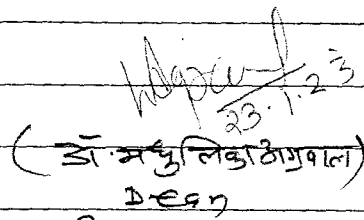 23.1.23
(डॉ. मधुलिका अग्रवाल)
Dean